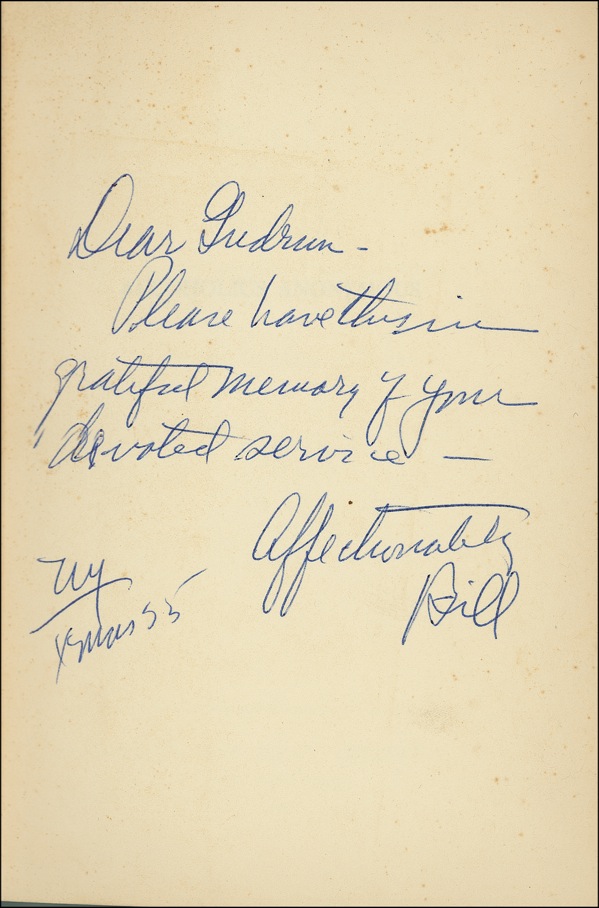 Dear Gudrun -
Please have this in
grateful memory of your
devoted service —
Affectionately
Bill
NY
Xmas 55